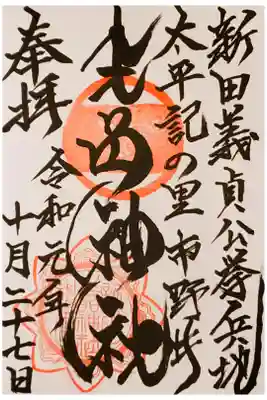 新田義貞公挙兵地
太平記の里市野井
生品神社
奉拝
令和元年
十月二十七日